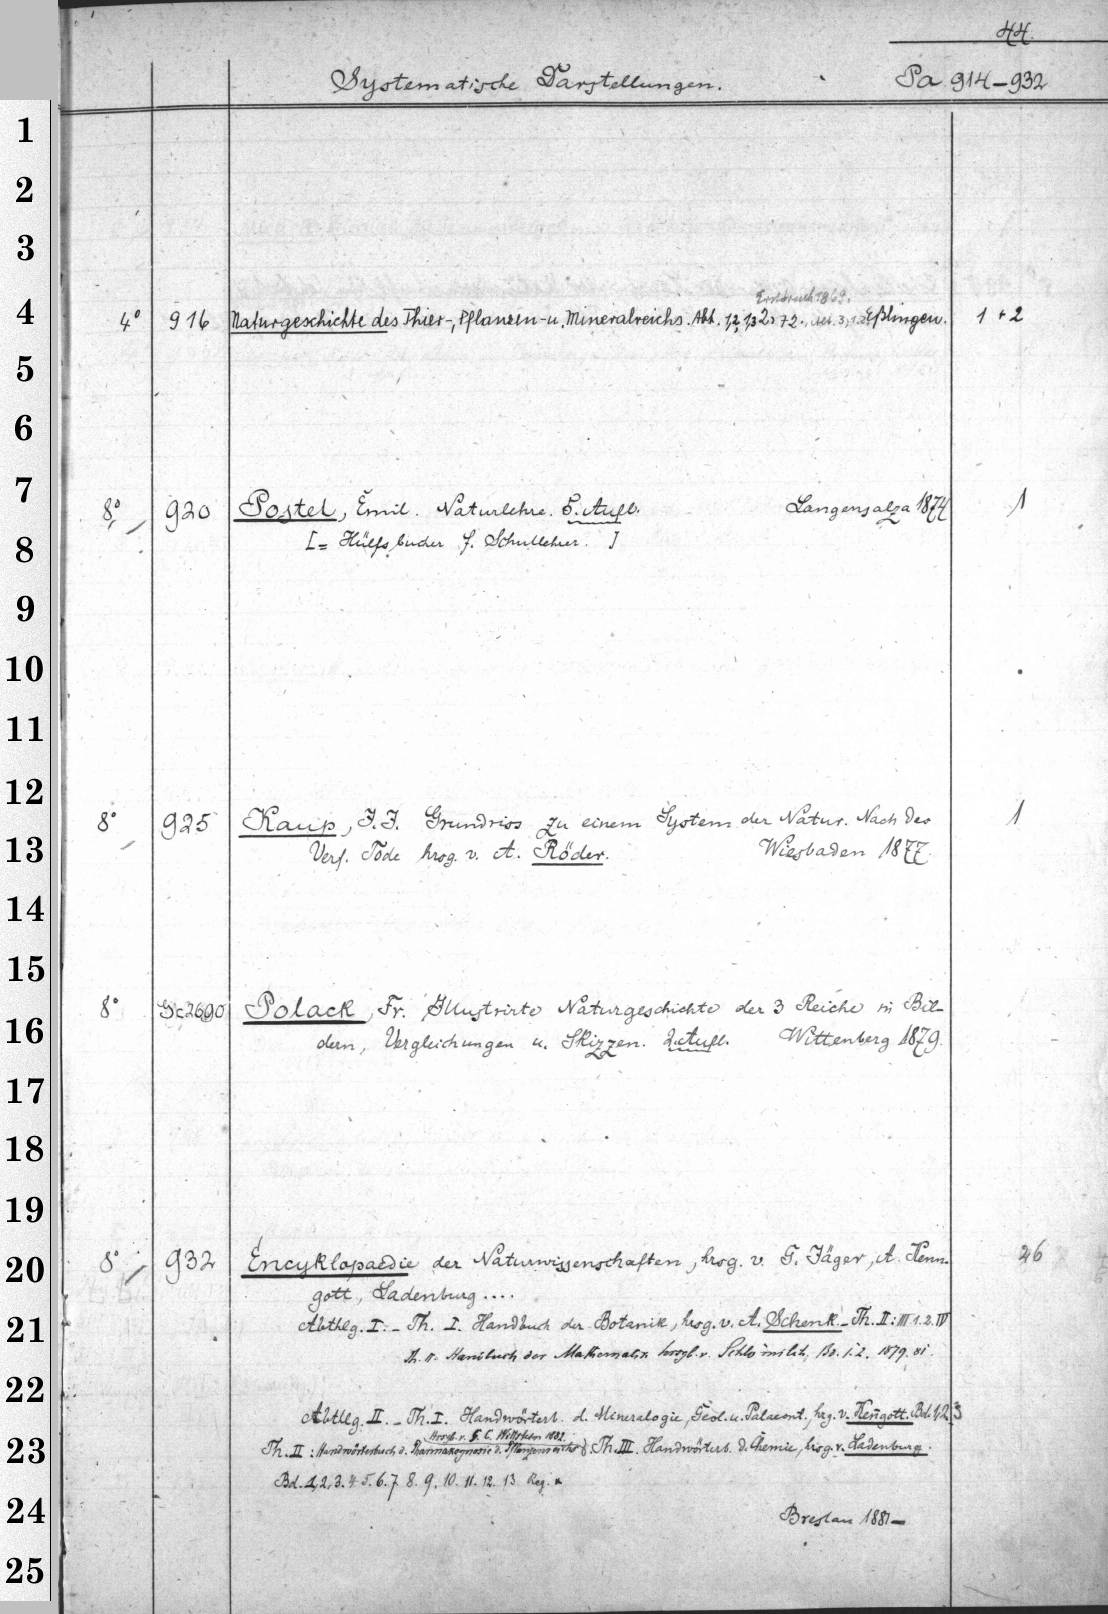 44.
Systematische Darstellungen. Pa 914-932
1
2
3
Erstdruck 1869.
4 4° 916 Naturgeschichte des Thier-, Pflanzen- u. Mineralreichs. Abt. Eßlingen. 1 + 2
5
6
7 8° 920 Postel, Emil. Naturlehre. 5. Aufl. Langensalza 1874 1
8 [= Hülfsbücher f. Schullehrer. ]
9
10
11
12 8° 925 Kaup, J. J. Grundriss zu einem System der Natur. Nach des 1
13 Verf. Tode hrsg. v. A. Röder. Wiesbaden 1877.
14
15
16 8° Sc 2690 Polack, Fr. Illustrirte Naturgeschichte der 3 Reiche in Bil-
dern, Vergleichungen u. Skizzen. 2. Aufl. Wittenberg 1879.
17
18
19
20 8° 932 Encyklopaedie der Naturwissenschaften, hrsg. v. G. Jäger, A. Kenn- 26
gott, Ladenburg....
21 Abthlg. I. - Th. I. Handbuch der Botanik, hrsg. v. A. Schenk - Th. II: III 1.2. IV
Th. II. Handbuch der Mathematik hrsg. v. Schlömilch, Bd. 1. 2. 1879. 81.
22 Abtlg. II. - Th. I. Handwörterb. d. Mineralogie, Geol. u. Palaeont., hrg. v. Kenngott. Bd. 1, 2, 3
Hrsg. v. G. C. Wittstein 1882.
23 Th. II: Handwörterbuch d. Pharmakognosie d. Pflanzenreichs Th. III. Handwörterb. d. Chemie, hrsg. v. Ladenburg.
Bd. 1, 2, 3. 4. 5. 6. 7. 8. 9. 10. 11. 12. 13 Reg.
24 Breslau 1881-
25